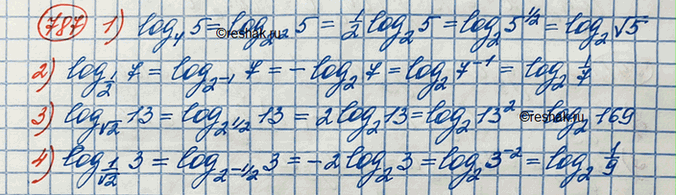 787 1) log₄ 5 = log₂² 5 = ½ log₂ 5 = log₂ 5^½ = log₂ √5
©reshak.ru
2) log_½ 7 = log_2⁻¹ 7 = - log₂ 7 = log₂ 7⁻¹ = log₂ 1/7
3) log_√2 13 = log_2^½ 13 = 2 log₂ 13 = log₂ 13² = log₂ 169
©reshak.ru
4) log_1/√2 3 = log_2^-½ 3 = -2 log₂ 3 = log₂ 3⁻² = log₂ 1/9